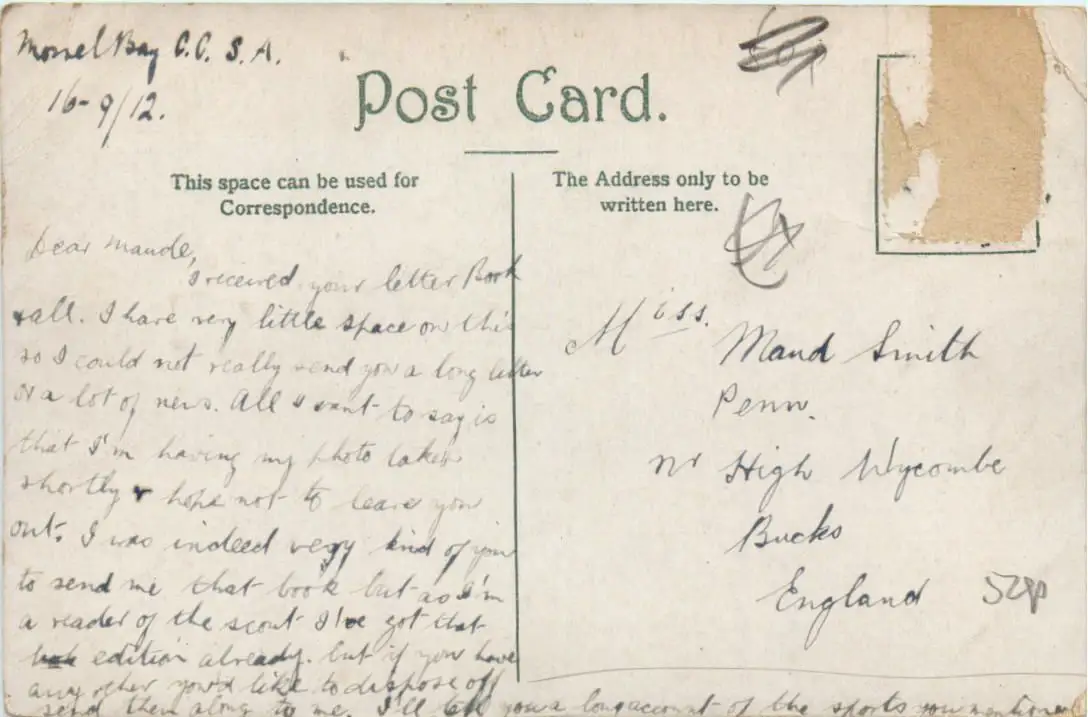 Mossel Bay C.C. S.A.
16-9/12.
Post Card.
This space can be used for
Correspondence.
The Address only to be
written here.
Dear Maude,
I received your letter Book
& all. I have very little space on this
so I could not really send you a long letter
or a lot of news. All I want to say is
that I'm having my photo taken
shortly & hope not to leave you
out. I was indeed very kind of you
to send me that book but as I'm
a reader of the scout I've got that
edition already. but if you have
any other you'd like to dispose off
send them along to me. I'll tell you a long account of the sports you mentioned
Miss.
Maud Smith
Penn.
nr High Wycombe
Bucks
England
52p